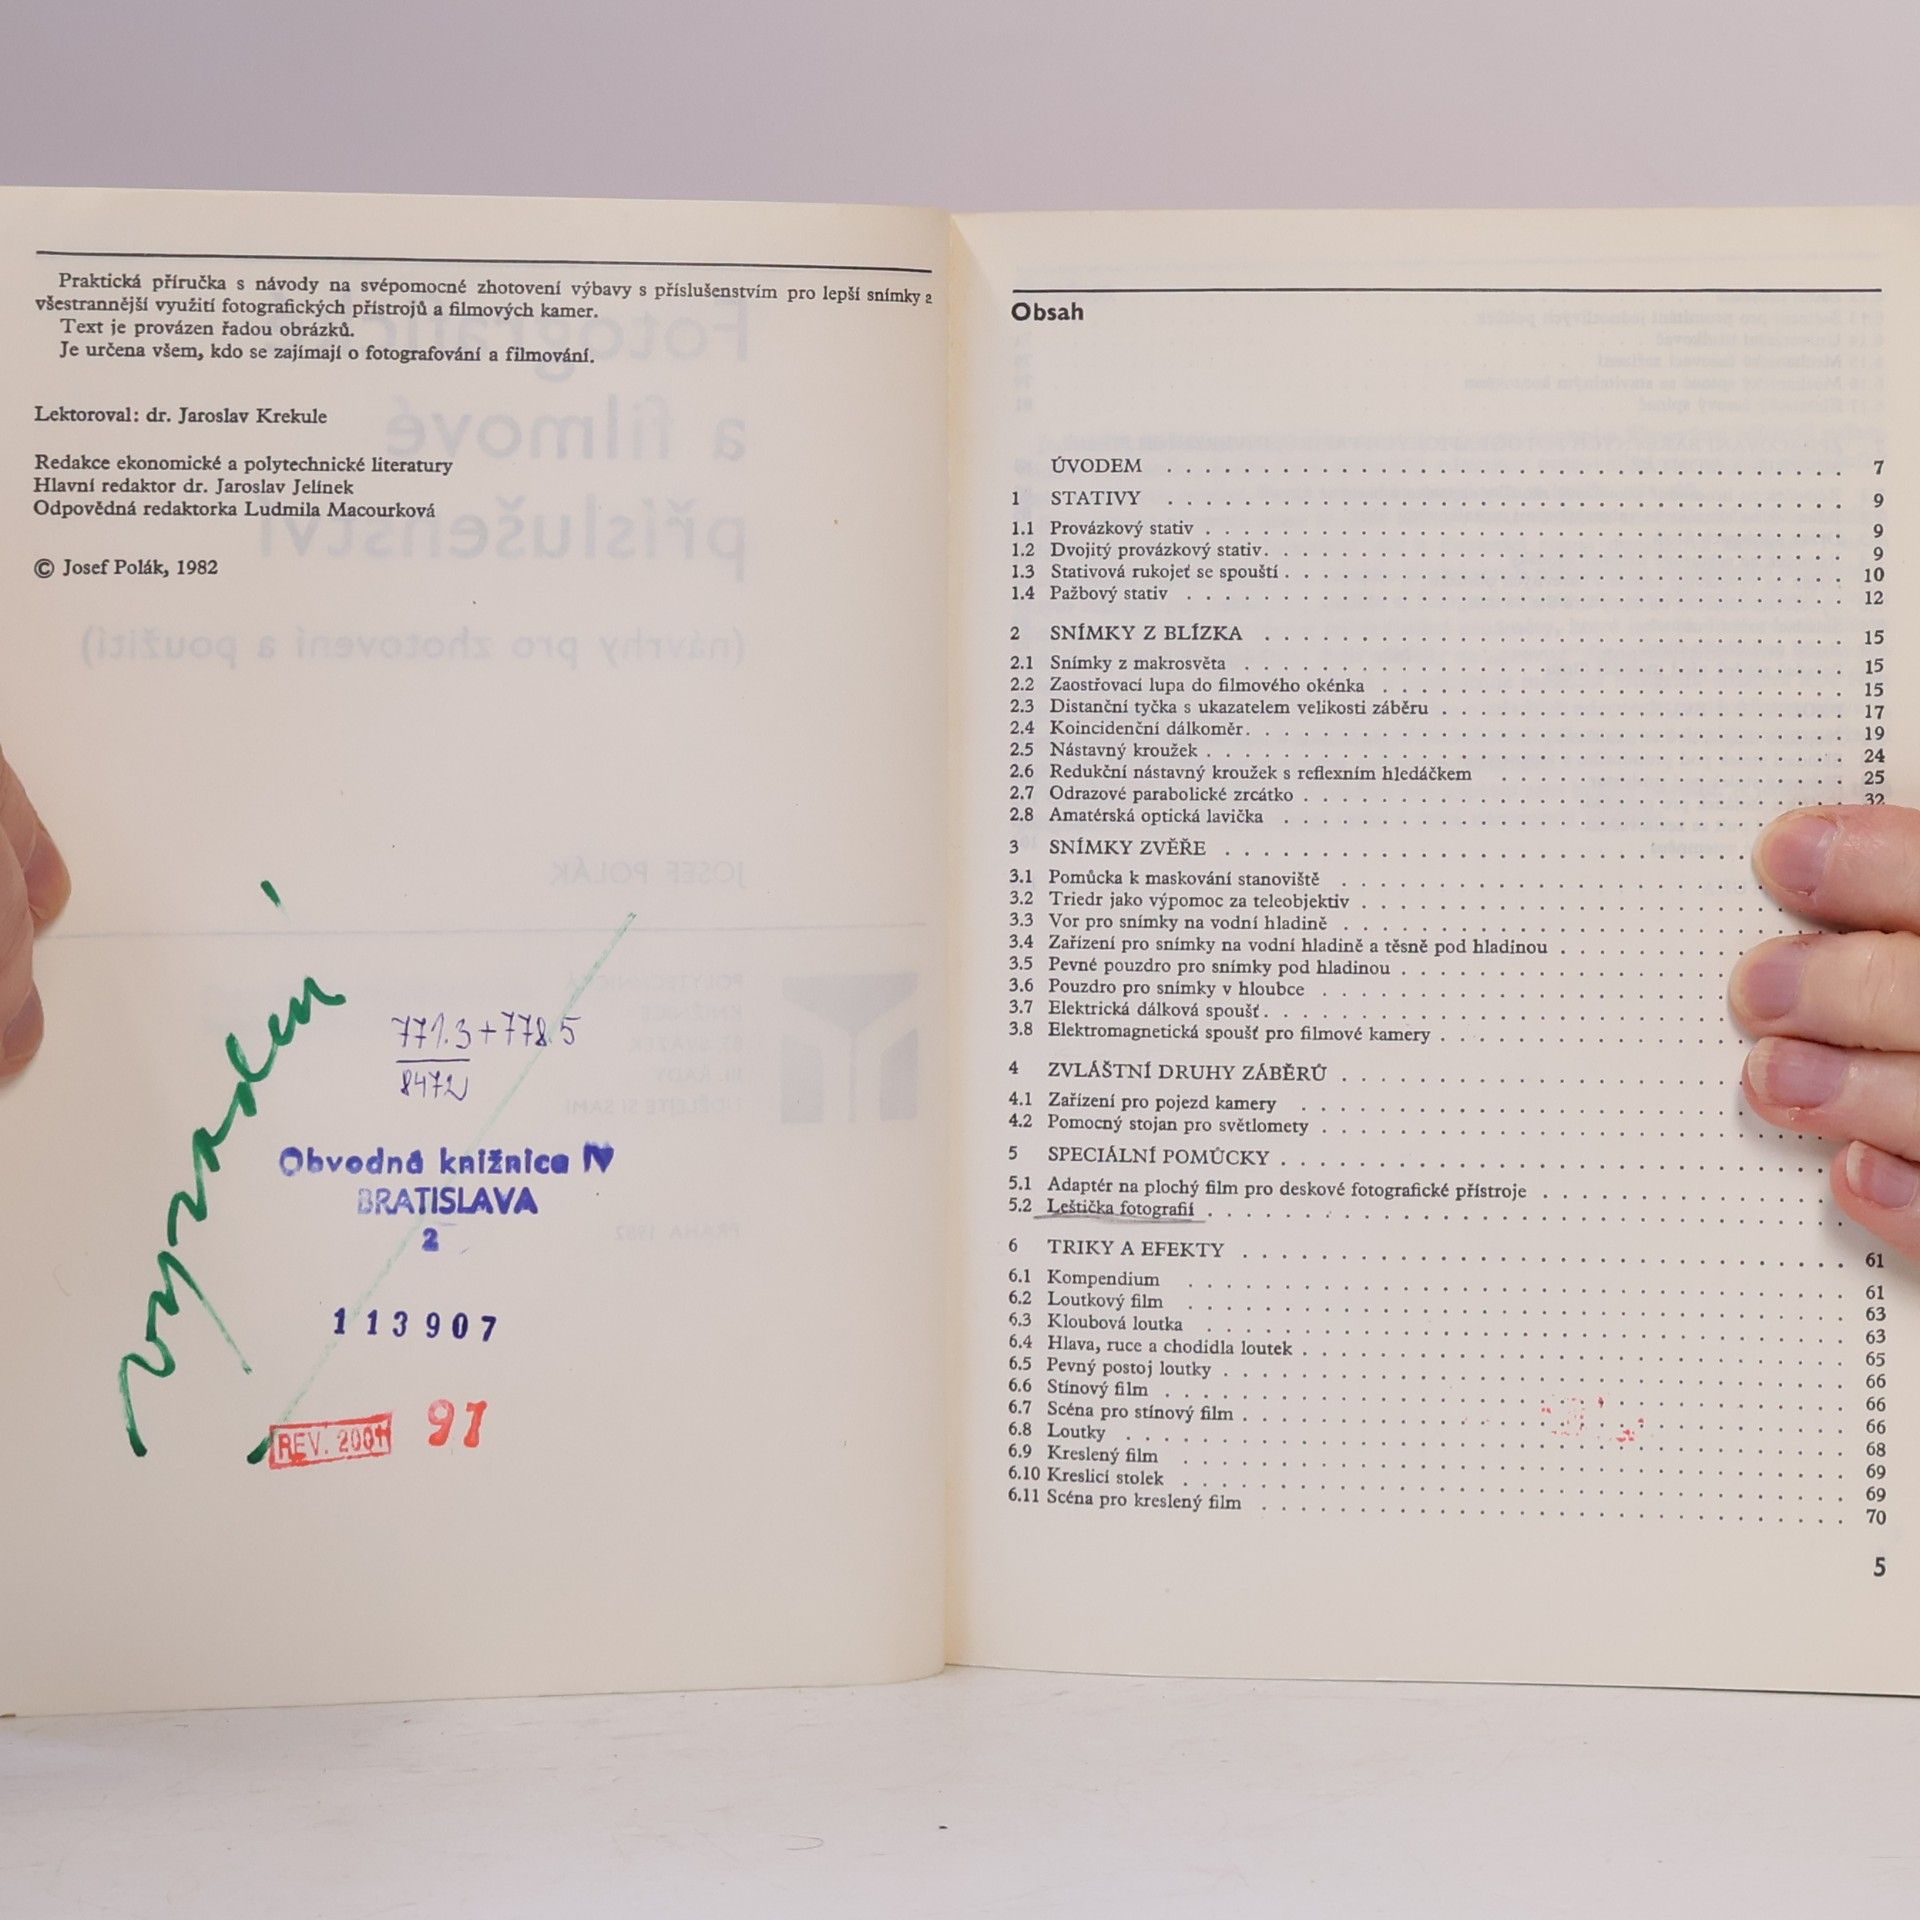 Praktická příručka s návody na svépomocné zhotovení výbavy s příslušenstvím pro lepší snímky a
všestrannější využití fotografických přístrojů a filmových kamer.
Text je provázen řadou obrázků.
Je určena všem, kdo se zajímají o fotografování a filmování.
Lektoroval: dr. Jaroslav Krekule
Redakce ekonomické a polytechnické literatury
Hlavní redaktor dr. Jaroslav Jelínek
Odpovědná redaktorka Ludmila Macourková
© Josef Polák, 1982
vyradený
771.3+778.5
8472
Obvodná knižnica IV
BRATISLAVA
2
113907
REV. 2001
91
Obsah
ÚVODEM . . . 7
1 STATIVY . . . 9
1.1 Provázkový stativ . . . 9
1.2 Dvojitý provázkový stativ . . . 9
1.3 Stativová rukojeť se spouští . . . 10
1.4 Pažbový stativ . . . 12
2 SNÍMKY Z BLÍZKA . . . 15
2.1 Snímky z makrosvěta . . . 15
2.2 Zaostřovací lupa do filmového okénka . . . 15
2.3 Distanční tyčka s ukazatelem velikosti záběru . . . 17
2.4 Koincidenční dálkoměr . . . 19
2.5 Nástavný kroužek . . . 24
2.6 Redukční nástavný kroužek s reflexním hledáčkem . . . 25
2.7 Odrazové parabolické zrcátko . . . 32
2.8 Amatérská optická lavička . . .
3 SNÍMKY ZVĚŘE . . .
3.1 Pomůcka k maskování stanoviště . . .
3.2 Triedr jako výpomoc za teleobjektiv . . .
3.3 Vor pro snímky na vodní hladině . . .
3.4 Zařízení pro snímky na vodní hladině a těsně pod hladinou . . .
3.5 Pevné pouzdro pro snímky pod hladinou . . .
3.6 Pouzdro pro snímky v hloubce . . .
3.7 Elektrická dálková spoušť . . .
3.8 Elektromagnetická spoušť pro filmové kamery . . .
4 ZVLÁŠTNÍ DRUHY ZÁBĚRŮ . . .
4.1 Zařízení pro pojezd kamery . . .
4.2 Pomocný stojan pro světlomety . . .
5 SPECIÁLNÍ POMŮCKY . . .
5.1 Adaptér na plochý film pro deskové fotografické přístroje . . .
5.2 Leštička fotografií . . .
6 TRIKY A EFEKTY . . . 61
6.1 Kompendium . . . 61
6.2 Loutkový film . . . 63
6.3 Kloubová loutka . . . 63
6.4 Hlava, ruce a chodidla loutek . . . 65
6.5 Pevný postoj loutky . . . 66
6.6 Stínový film . . . 66
6.7 Scéna pro stínový film . . . 66
6.8 Loutky . . . 68
6.9 Kreslený film . . . 69
6.10 Kreslicí stolek . . . 69
6.11 Scéna pro kreslený film . . . 70
5